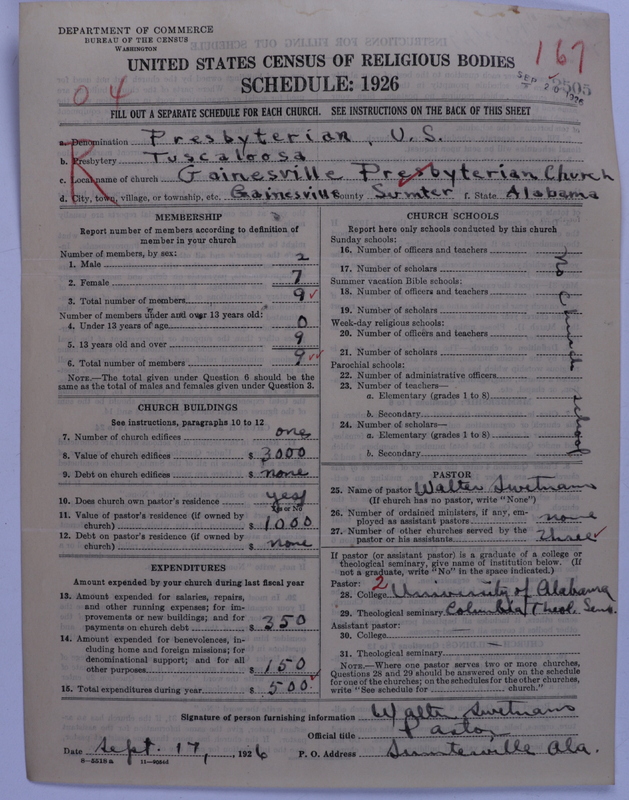 DEPARTMENT OF COMMERCE
BUREAU OF THE CENSUS
WASHINGTON
UNITED STATES CENSUS OF RELIGIOUS BODIES
SCHEDULE: 1926
167
SEP 20 1926
04
FILL OUT A SEPARATE SCHEDULE FOR EACH CHURCH. SEE INSTRUCTIONS ON THE BACK OF THIS SHEET
R
a. Denomination Presbyterian, U.S.
b. Presbytery Tuscaloosa
c. Local name of church Gainesville Presbyterian Church
d. City, town, village, or township, etc. Gainesville County Sumter f. State Alabama
MEMBERSHIP
Report number of members according to definition of
member in your church
Number of members, by sex:
1. Male 2
2. Female 7
3. Total number of members 9
Number of members under and over 13 years old:
4. Under 13 years of age 0
5. 13 years old and over 9
6. Total number of members 9
NOTE.—The total given under Question 6 should be the
same as the total of males and females given under Question 3.
CHURCH BUILDINGS
See instructions, paragraphs 10 to 12
7. Number of church edifices one
8. Value of church edifices $ 3000
9. Debt on church edifices $ none
10. Does church own pastor's residence yes
Yes or No
11. Value of pastor's residence (if owned by
church) $ 1000
12. Debt on pastor's residence (if owned by
church) $ none
EXPENDITURES
Amount expended by your church during last fiscal year
13. Amount expended for salaries, repairs,
and other running expenses; for im-
provements or new buildings; and for
payments on church debt $ 350
14. Amount expended for benevolences, in-
cluding home and foreign missions; for
denominational support; and for all
other purposes $ 150
15. Total expenditures during year $ 500
CHURCH SCHOOLS
Report here only schools conducted by this church
Sunday schools:
16. Number of officers and teachers
17. Number of scholars
Summer vacation Bible schools:
18. Number of officers and teachers
19. Number of scholars
Week-day religious schools:
20. Number of officers and teachers
21. Number of scholars
Parochial schools:
22. Number of administrative officers
23. Number of teachers—
a. Elementary (grades 1 to 8)
b. Secondary
24. Number of scholars—
a. Elementary (grades 1 to 8)
b. Secondary
No Church School
PASTOR
25. Name of pastor Walter Swetnam
(If church has no pastor, write "None")
26. Number of ordained ministers, if any, em-
ployed as assistant pastors none
27. Number of other churches served by the
pastor or his assistants three
If pastor (or assistant pastor) is a graduate of a college or
theological seminary, give name of institution below. (If
not a graduate, write "No" in the space indicated.)
Pastor: 2
28. College University of Alabama
29. Theological seminary Columbia Theol. Sem.
Assistant pastor:
30. College
31. Theological seminary
NOTE.—Where one pastor serves two or more churches,
Questions 28 and 29 should be answered only on the schedule
for one of the churches; on the schedules for the other churches,
write "See schedule for church."
Signature of person furnishing information Walter Swetnam
Official title Pastor
Date Sept. 17, 1926 P. O. Address Sumterville Ala.
8-5518a